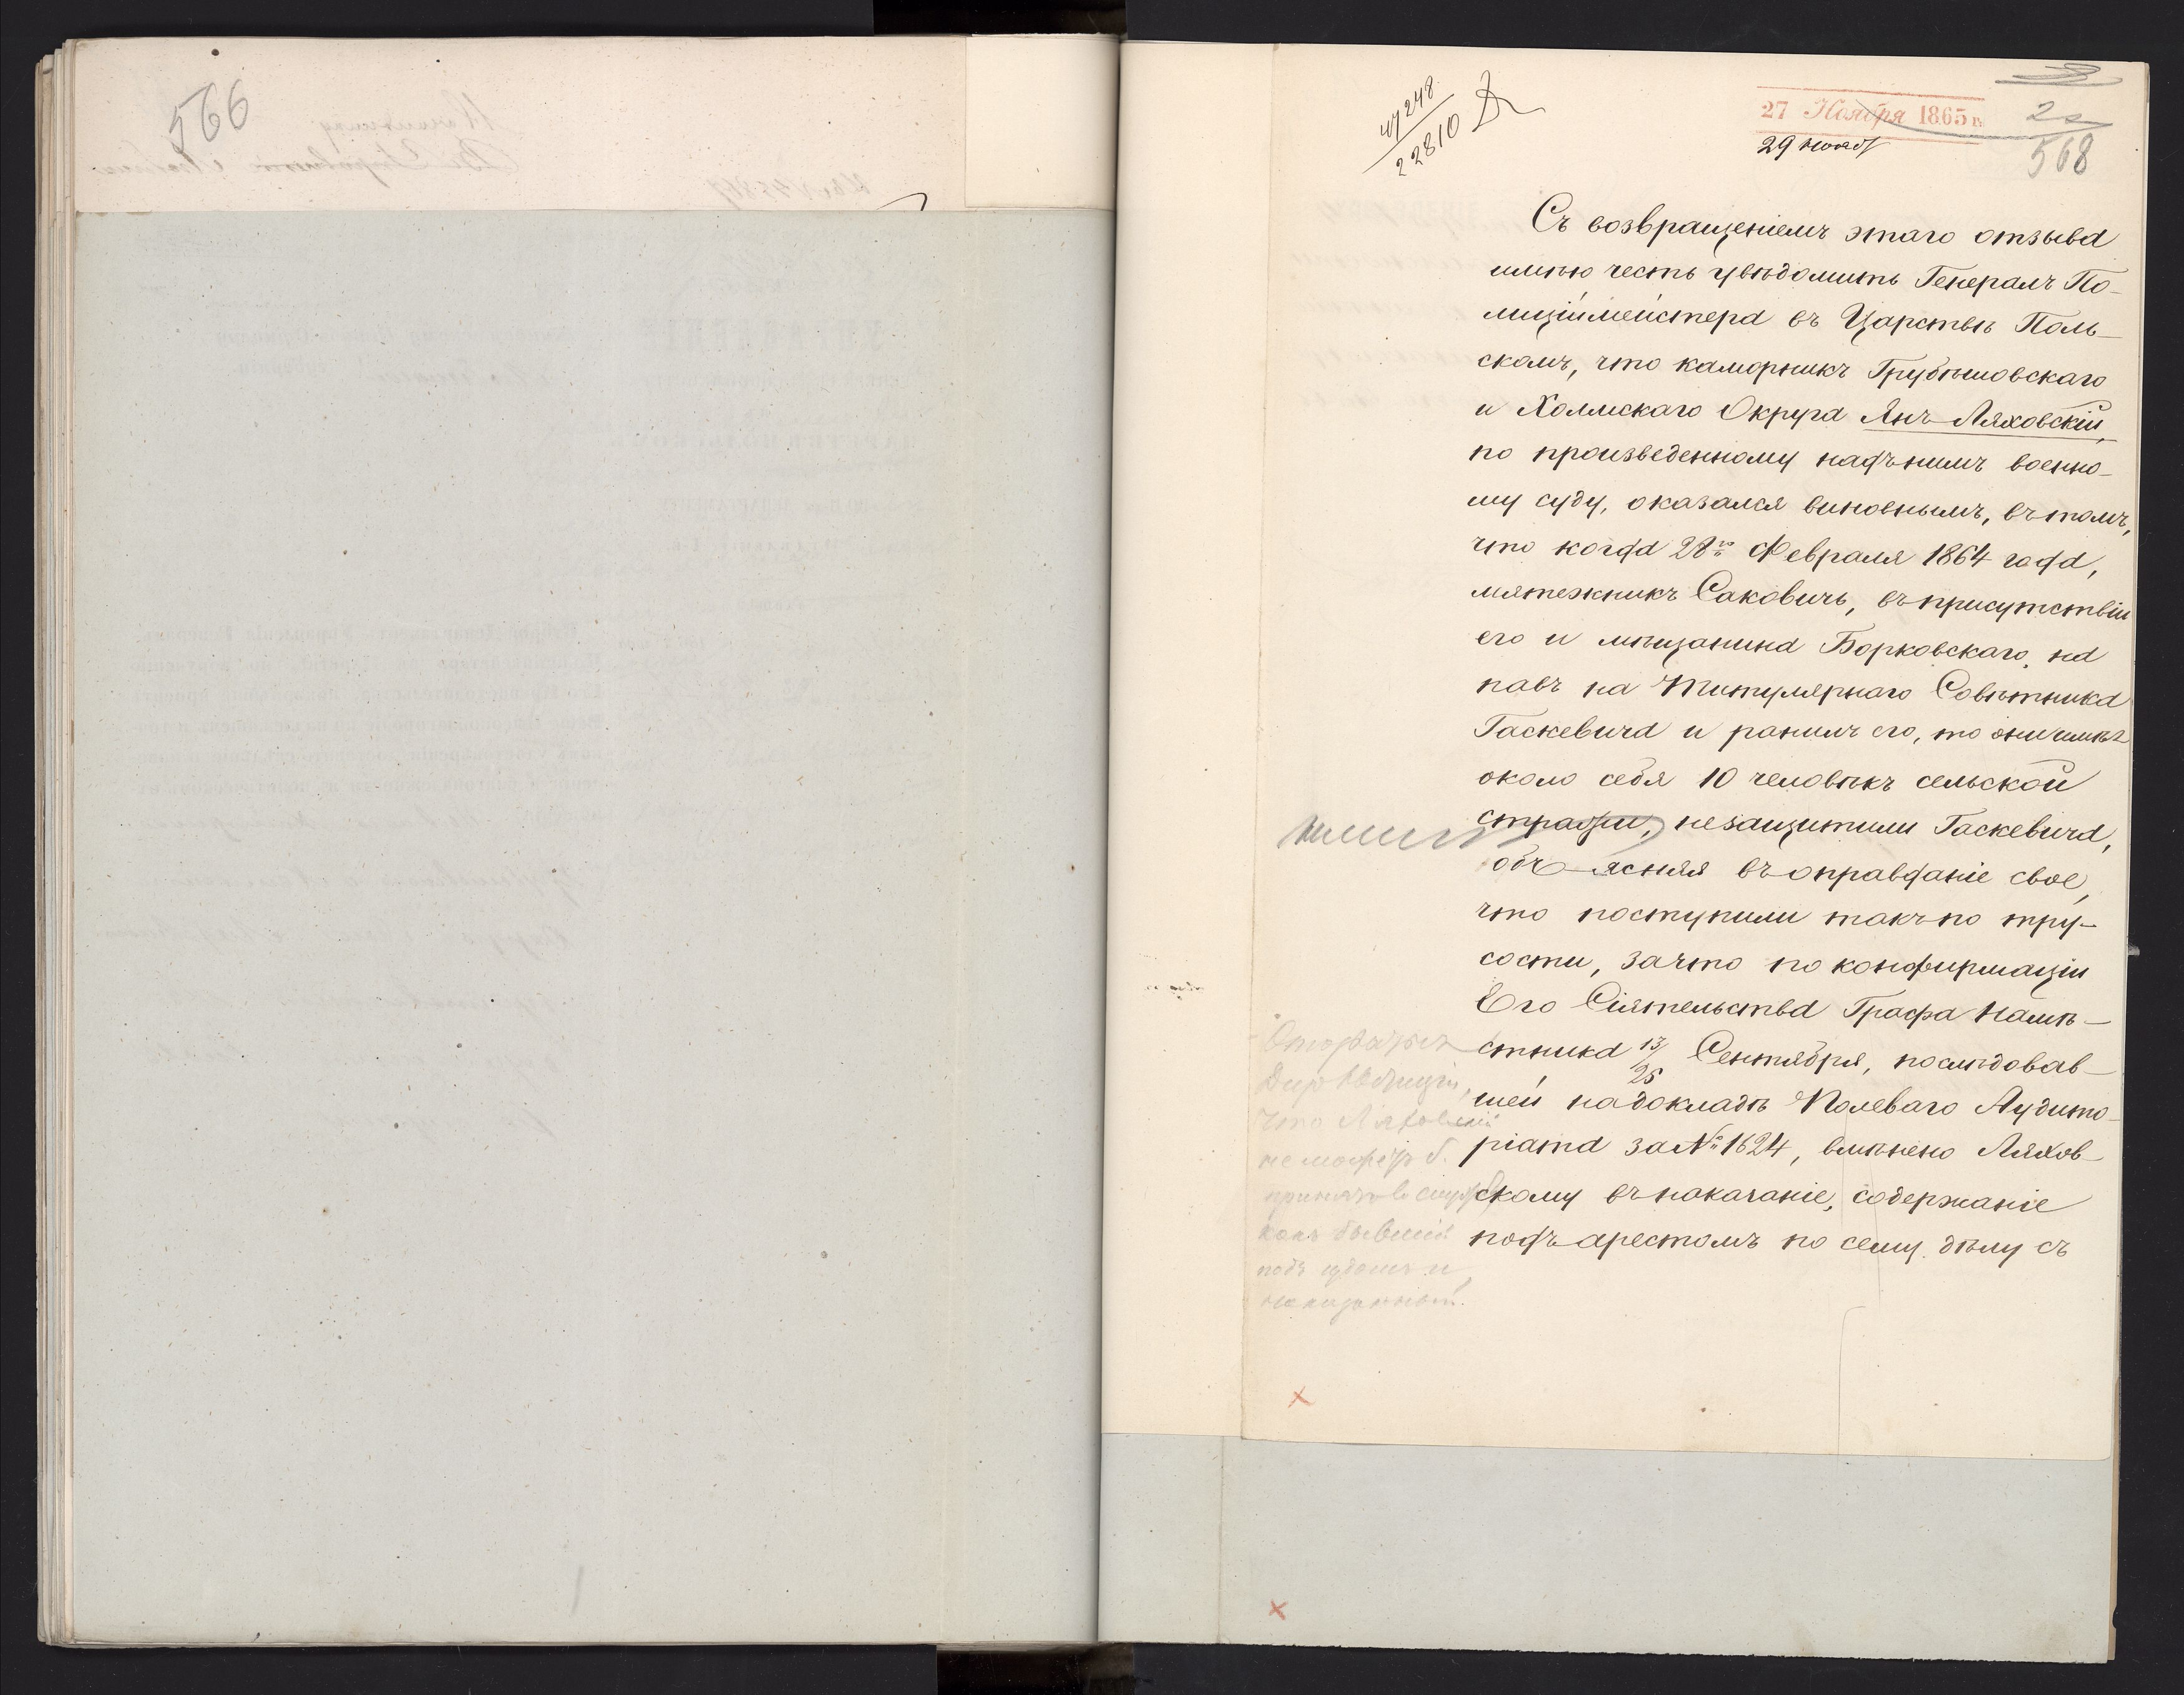 566
47248
22810
27 Ноября 1865 г.
29 нояб
2
568
Съ возвращеніемъ этаго отзыва
имѣю честь увѣдомить Генералъ По-
лиціймейстера въ Царствѣ Поль-
скомъ, что каморникъ Грубѣшовскаго
и Холмскаго Округа Янъ Ляховскій,
по произведенному надъ нимъ военно-
му суду, оказался виновнымъ, въ томъ,
что когда 28го Февраля 1864 года,
мятежникъ Саковичь, въ присутствіи
его и мѣщанина Борковскаго, на
павъ на Титулярнаго Совѣтника
Гаскевича и ранилъ его, то они имѣя
около себя 10 человѣкъ сельской
стражи, не защитили Гаскевича,
объясняя въ оправданіе свое,
что поступили такъ по тру-
сости, за что по конфирмаціи
Его Сіятельства Графа Намѣ-
стника 13/25 Сентября, послѣдовав-
шей на докладѣ Полеваго Аудито-
ріата за № 1624, вмѣнено Ляхов-
скому въ наказаніе, содержаніе
подъ арестомъ по сему дѣлу съ
что Ляховскій
не можетъ б.
принятъ въ службу
какъ бывшій
подъ судомъ и
наказанный.